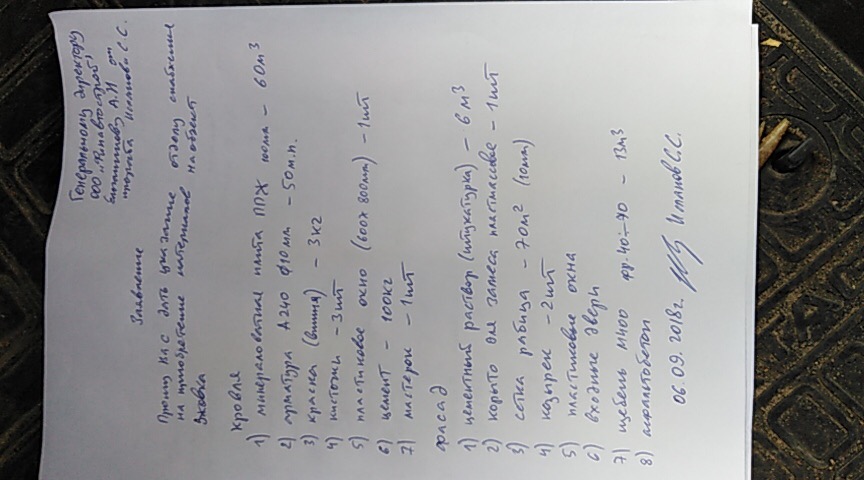 Генеральному директору
ООО
А.И. от
прораба Имамова С.С.
Заявление
Прошу Вас дать указание отделу снабжения
на приобретение материалов на объект
Кровля
1) минераловатная плита ППЖ - 60м3
2) арматура А240 ф10мм - 50м.п.
3) краска (вишня) - 3кг
4) кисточки - 3шт
5) пластиковое окно (600х800мм) - 1шт
6) цемент - 100кг
7) мастерок - 1шт
Фасад
1) цементный раствор (штукатурка) - 6м3
2) корыто для замеса пластмассовое - 1шт
3) сетка рабица - 70м2 (10мм)
4) козырек - 2шт
5) пластиковые окна
6) входные двери
7) щебень М400 фр. 40÷70 - 13м3
8) асфальтобетон
06.09.2018г. Имамов С.С.